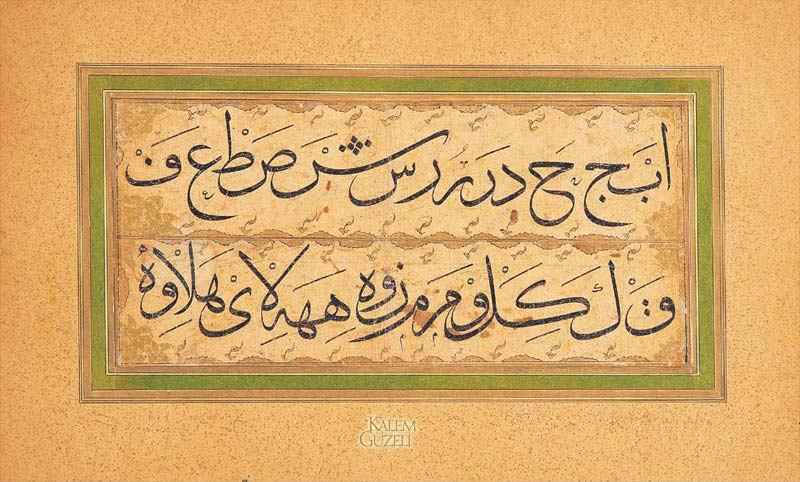 ا ب ج ح د ر ر ر س ش ص ط ع ف
ق ك ك ل و م م م ن و ه ه ه لا ى ه لا و ه
KALEM
GÜZELİ